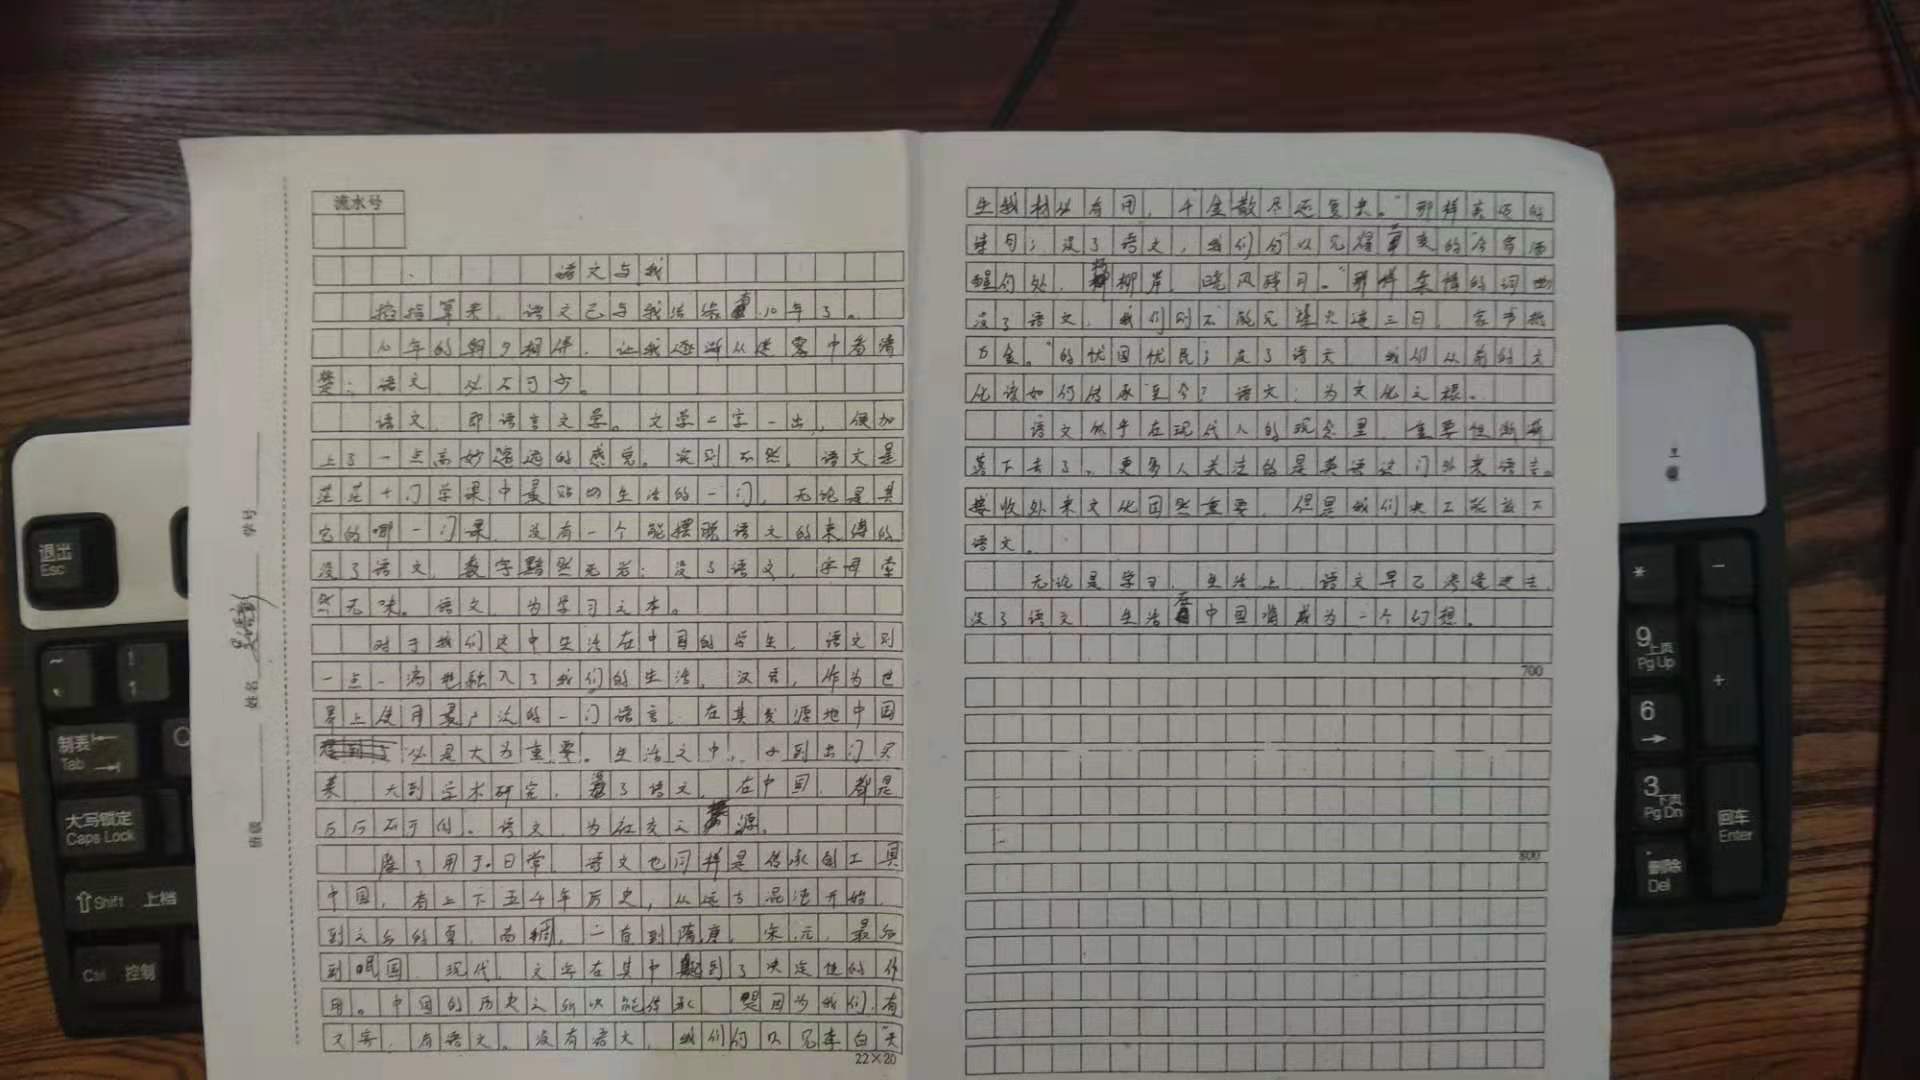 流水号
语文与我
掐指算来，语文已与我结缘有10年了。
10年的朝夕相伴，让我逐渐从迷雾中看清
楚：语文，必不可少。
语文，即语言文学。文学二字一出，便加
上了一点高妙遥远的感觉。实则不然，语文是
茫茫十门学课中最贴切生活的一门，无论是其
它的哪一门课，没有一个能摆脱语文的束缚的
没了语文，数字黯然无光；没了语文，字母索
然无味。语文，为学习之本。
对于我们这中生活在中国的学生，语文则
一点一滴地融入了我们的生活。汉言，作为世
界上使用最广泛的一门语言，在其发源地中国
必是大为重要。生活之中，小到出门买
菜，大到学术研究，没了语文，在中国，都是
万万不可的。语文，为社交之源。
除了用于日常，语文也同样是传承的工具
中国，有上下五千年历史，从远古混沌开始，
到之后的夏、商、周，一直到隋唐、宋、元，最后
到民国、现代，文字在其中起到了决定性的作
用。中国的历史之所以能传承，是因为我们有
文字，有语文。没有语文，我们何以见李白"天
生我材必有用，千金散尽还复来。"那样豪迈的
诗句；没了语文，我们何以见耀"今宵酒
醒何处，杨柳岸，晓风残月。"那样柔情的词曲
没了语文，我们则不能见"烽火连三月，家书抵
万金。"的忧国忧民；没了语文，我们从前的文
化该如何传承至今？语文，为文化之根。
语文似乎在现代人的观念里，重要性渐渐
落下去了。更多人关注的是英语这门外来语言。
接收外来文化固然重要，但是我们决不能放下
语文。
无论是学习，生活上，语文早已渗透进去，
没了语文，生活在中国将成为一个幻想。
700
800
22×20
学号
姓名
班级
退出
Esc
制表
Tab
大写锁定
Caps Lock
Shift 上档
Ctrl 控制
*
-
9
上页
Pg Up
+
6
3
下页
Pg Dn
回车
Enter
删除
Del